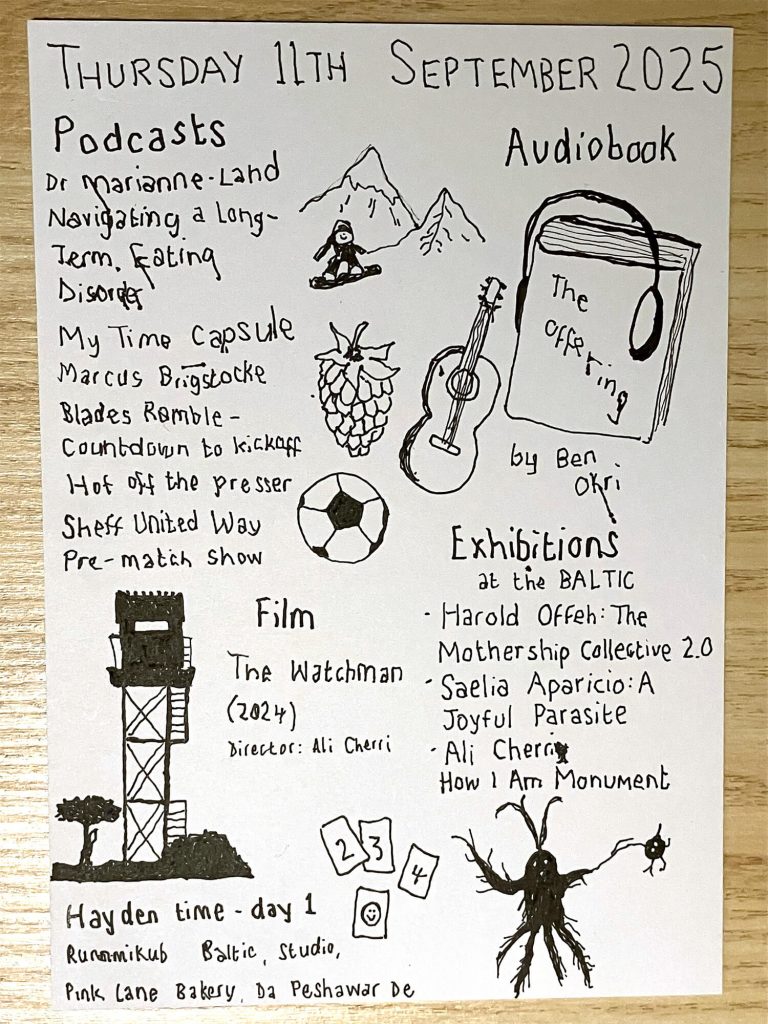 THURSDAY 11TH SEPTEMBER 2025
Podcasts
Dr Marianne-Land
Navigating a Long-
Term, Eating
Disorder
My Time Capsule
Marcus Brigstocke
Blades Ramble -
Countdown to kickoff
Hot off the presser
Sheff United Way
Pre-match show
Audiobook
The
offering
by Ben
Okri
Exhibitions
at the BALTIC
- Harold Offeh: The
Mothership Collective 2.0
- Saelia Aparicio: A
Joyful Parasite
- Ali Cherri
How I Am Monument
Film
The Watchman
(2024)
Director: Ali Cherri
2 3
4
Hayden time - day 1
Rummikub Baltic, Studio,
Pink Lane Bakery, Da Peshawar De